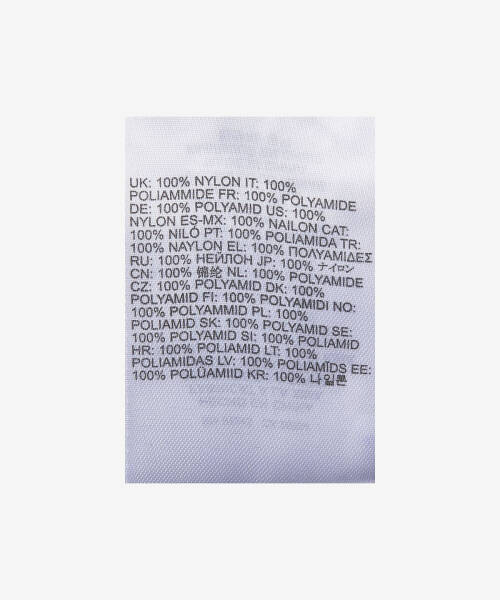 UK: 100% NYLON IT: 100%
POLIAMMIDE FR: 100% POLYAMIDE
DE: 100% POLYAMID US: 100%
NYLON ES-MX: 100% NAILON CAT:
100% NILÓ PT: 100% POLIAMIDA TR:
100% NAYLON EL: 100% ΠΟΛΥΑΜΙΔΕΣ
RU: 100% НЕЙЛОН JP: 100% ナイロン
CN: 100% 锦纶 NL: 100% POLYAMIDE
CZ: 100% POLYAMID DK: 100%
POLYAMID FI: 100% POLYAMIDI NO:
100% POLYAMMID PL: 100%
POLIAMID SK: 100% POLYAMID SE:
100% POLYAMID SI: 100% POLIAMID
HR: 100% POLIAMID LT: 100%
POLIAMIDAS LV: 100% POLIAMĪDS EE:
100% POLÜAMIID KR: 100% 나일론